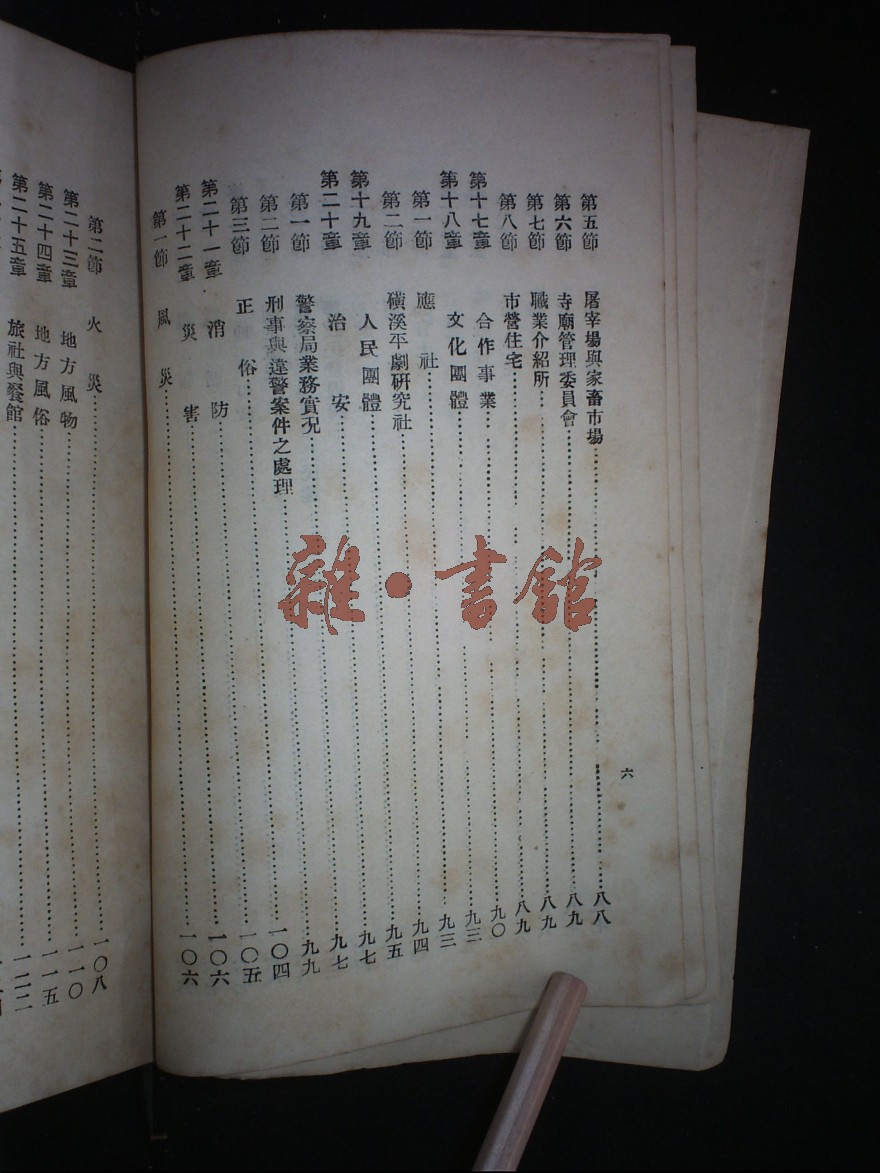 第五節 屠宰場與家畜市場……八八
第六節 寺廟管理委員會……八九
第七節 職業介紹所……八九
第八節 市營住宅……八九
第十七章 合作事業……九〇
第十八章 文化團體……九三
第一節 應社……九三
第二節 磺溪平劇研究社……九四
第十九章 人民團體……九五
第二十章 治安……九七
第一節 警察局業務實況……九七
第二節 刑事與違警案件之處理……九九
第三節 正俗……一〇四
第二十一章 消防……一〇五
第二十二章 災害……一〇六
第一節 風災……一〇六
六
第二節 火災……一〇八
第二十三章 地方風物……一一〇
第二十四章 地方風俗……一一五
第二十五章 旅社與餐館……一二二
雜·書館